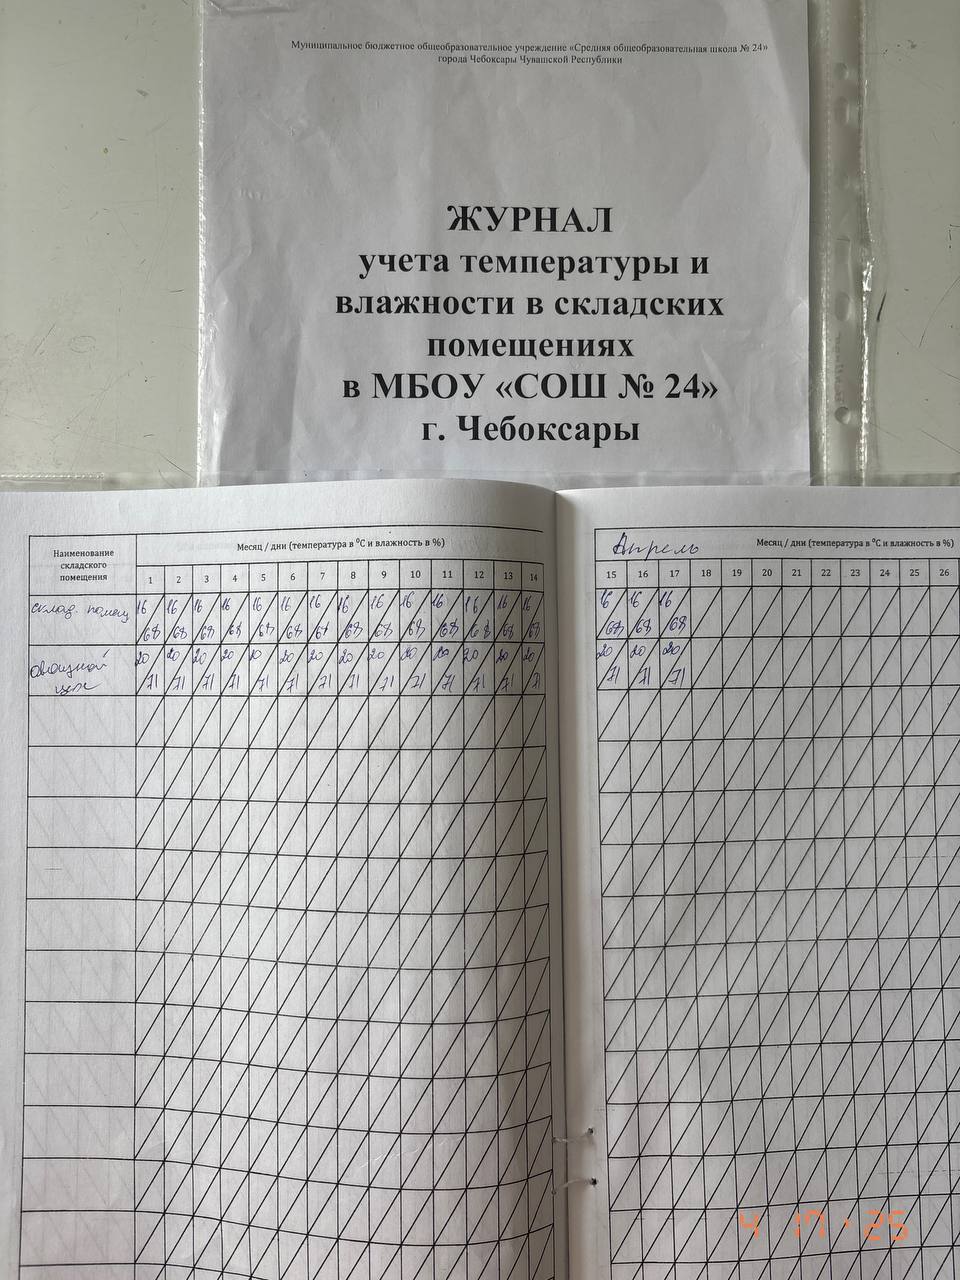 Муниципальное бюджетное общеобразовательное учреждение «Средняя общеобразовательная школа № 24»
города Чебоксары Чувашской Республики
ЖУРНАЛ
учета температуры и
влажности в складских
помещениях
в МБОУ «СОШ № 24»
г. Чебоксары
Наименование
складского
помещения
Месяц / дни (температура в ⁰С и влажность в %)
1 2 3 4 5 6 7 8 9 10 11 12 13 14
склад. помещ 16 16 16 16 16 16 16 16 16 16 16 16 16 16
68 68 68 68 68 68 68 68 68 68 68 68 68 68
овощной 20 20 20 20 20 20 20 20 20 20 20 20 20 20
цех 71 71 71 71 71 71 71 71 71 71 71 71 71 71
Апрель Месяц / дни (температура в ⁰С и влажность в %)
15 16 17 18 19 20 21 22 23 24 25 26
16 16 16
68 68 68
20 20 20
71 71 71
4 17 · 25